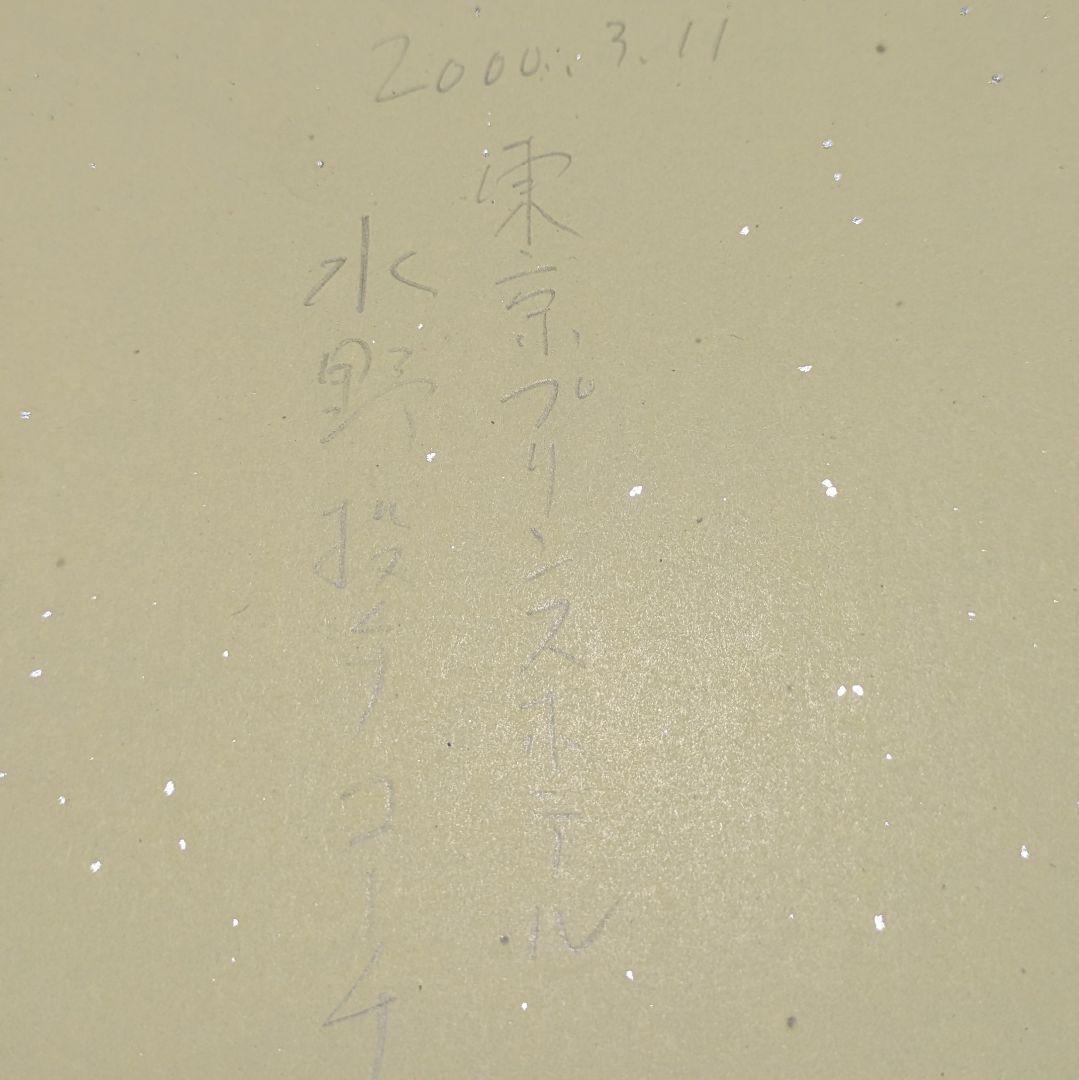 2000.3.11
東京プリンスホテル
水野投手コーチ